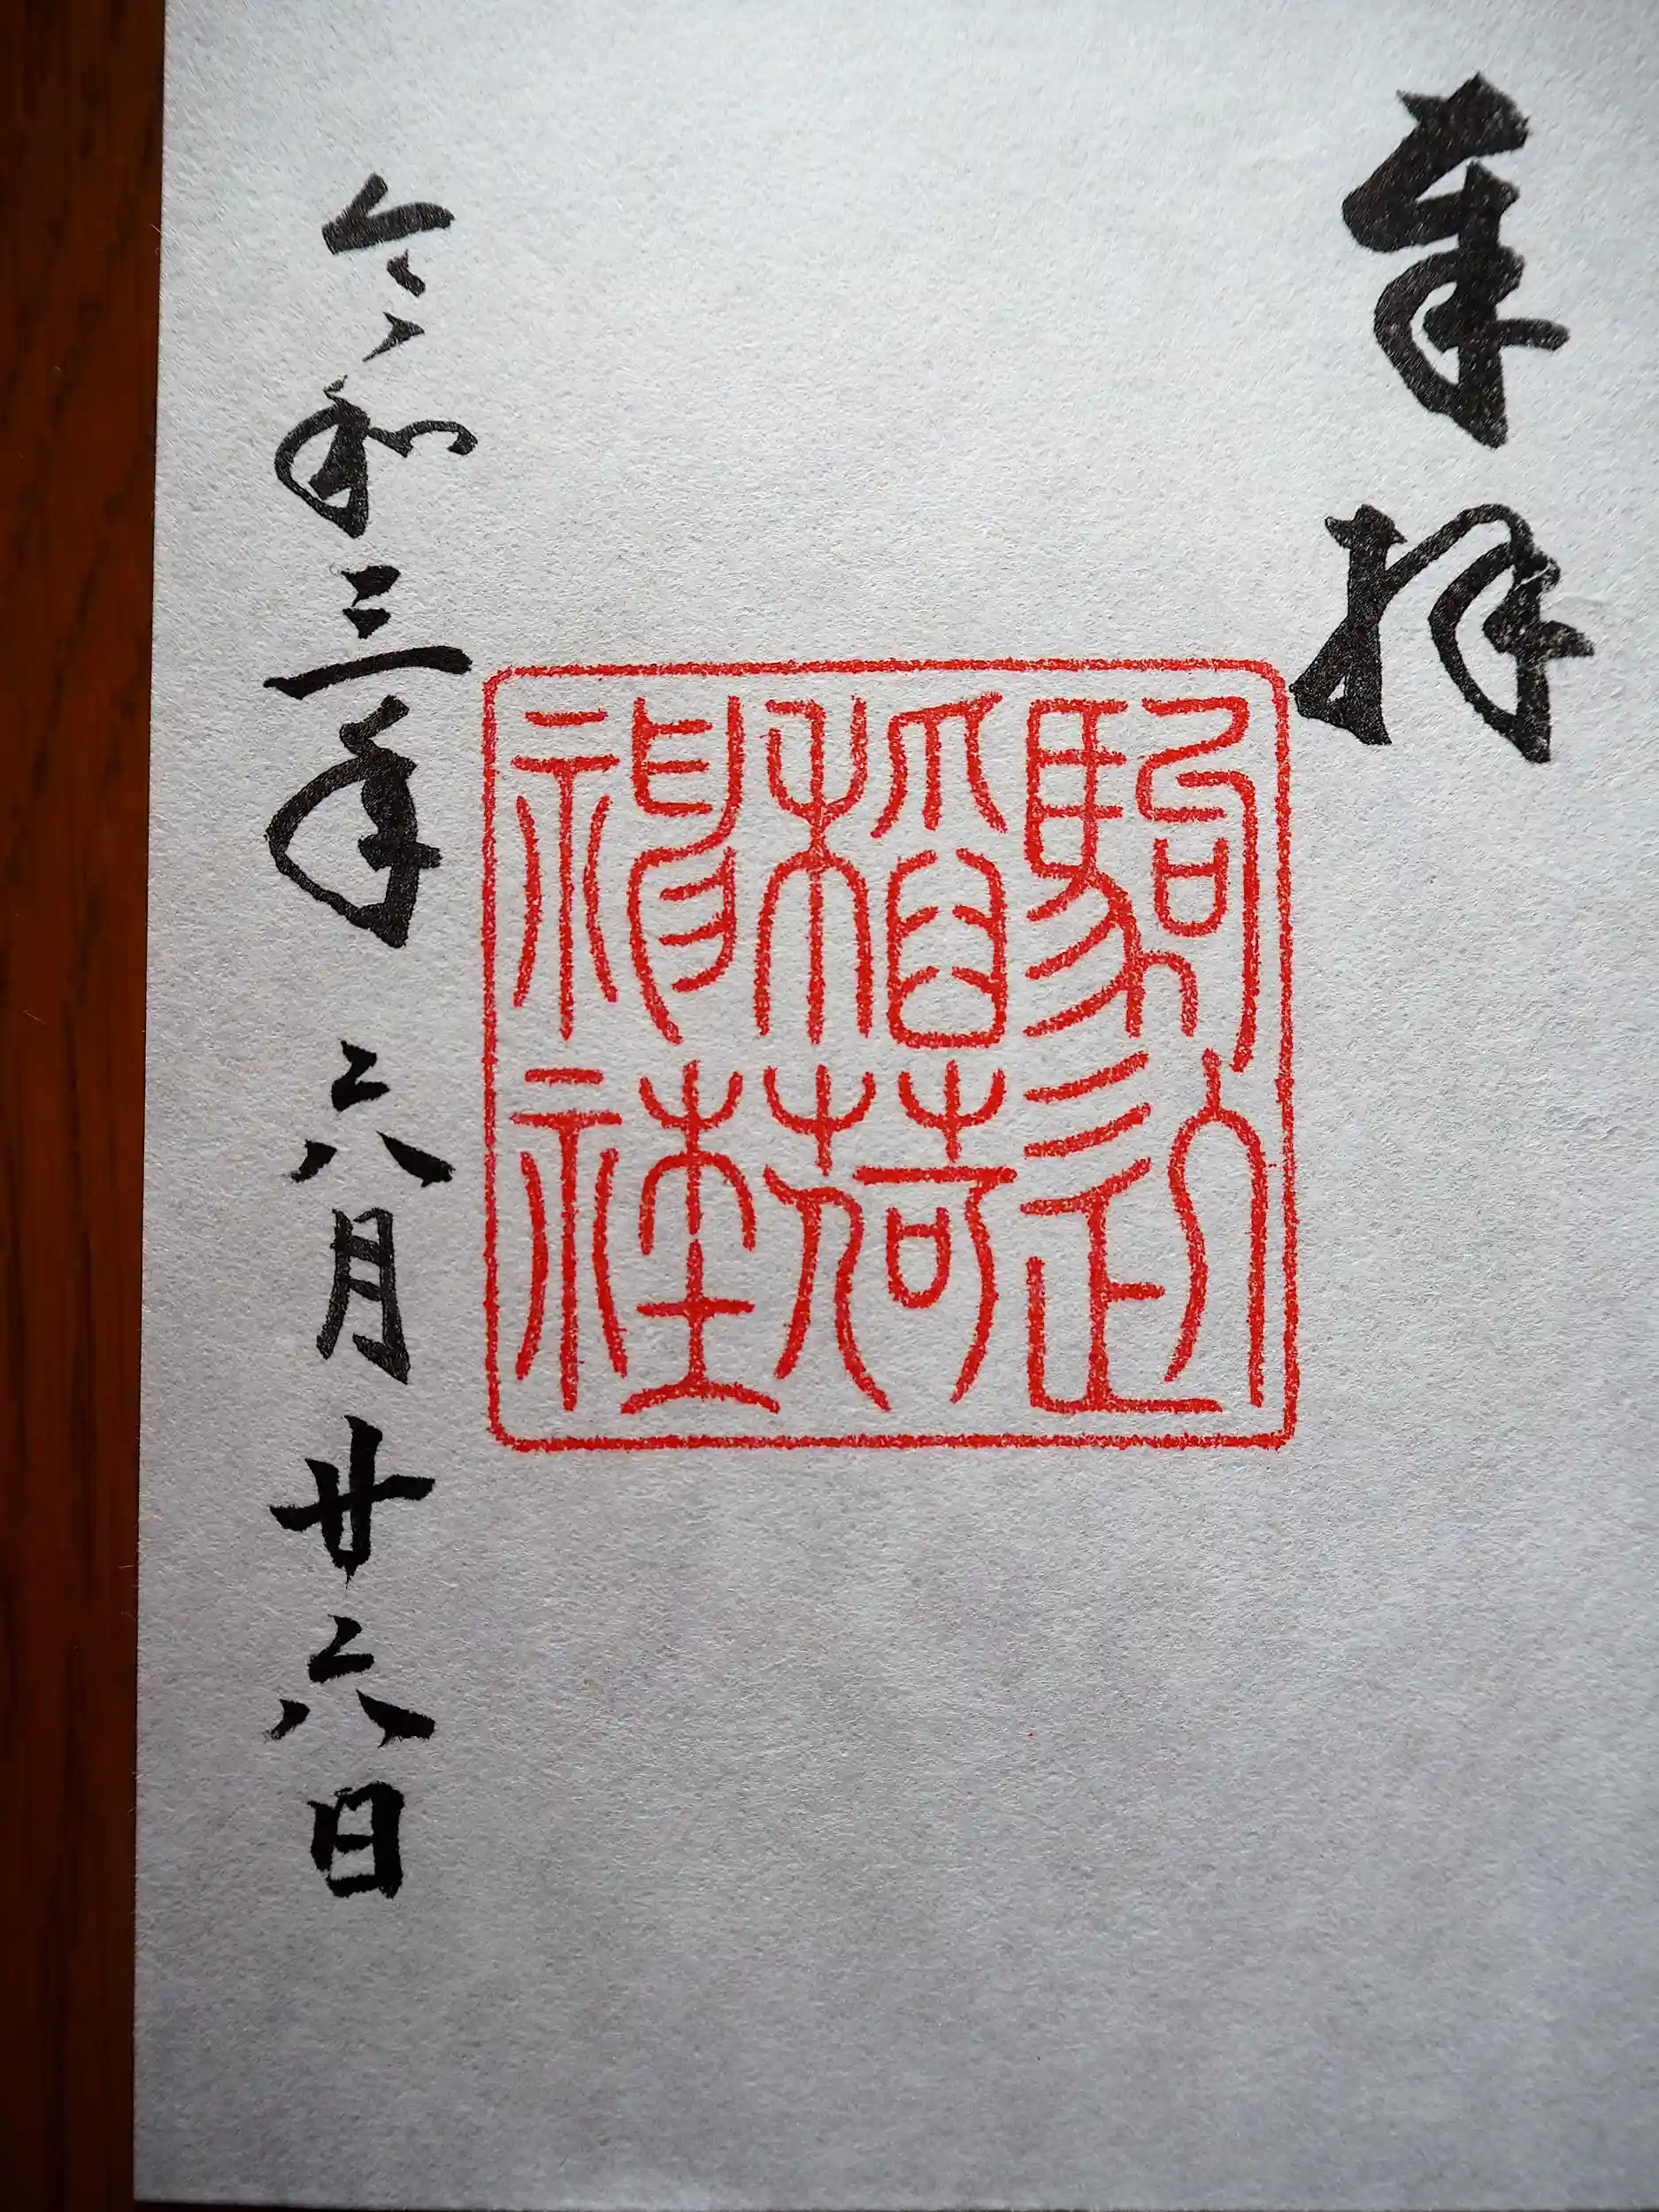 奉拝
駒込
稲荷
神社
令和三年六月廿六日